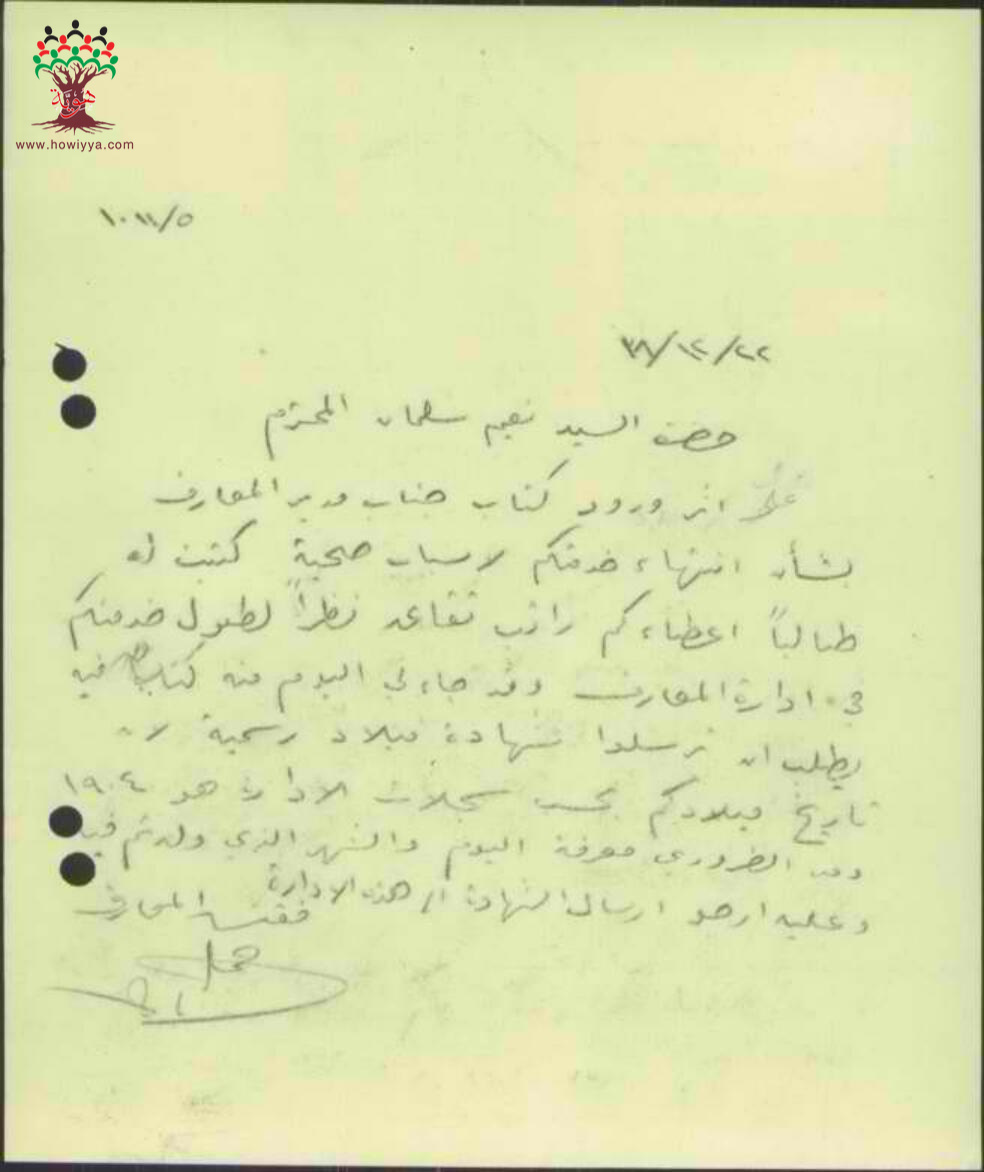 هوية
www.howiyya.com
١٠١١/٥
٣٨/١٢/٢٢
حضرة السيد نعيم سلمان المحترم
على اثر ورود كتاب جناب مدير المعارف
بشأن انتهاء خدمتكم لاسباب صحية كتبت له
طالباً اعطاءكم راتب تقاعد نظراً لطول خدمتكم
في ادارة المعارف وقد جاءني اليوم منه كتاب فيه
يطلب ان ترسلوا شهادة ميلاد رسمية لان
تاريخ ميلادكم بحسب سجلات الادارة هو ١٩٠٤
ومن الضروري معرفة اليوم والشهر الذي ولدتم فيه
وعليه ارجو ارسال الشهادة الى هذه الادارة
مفتش المعارف